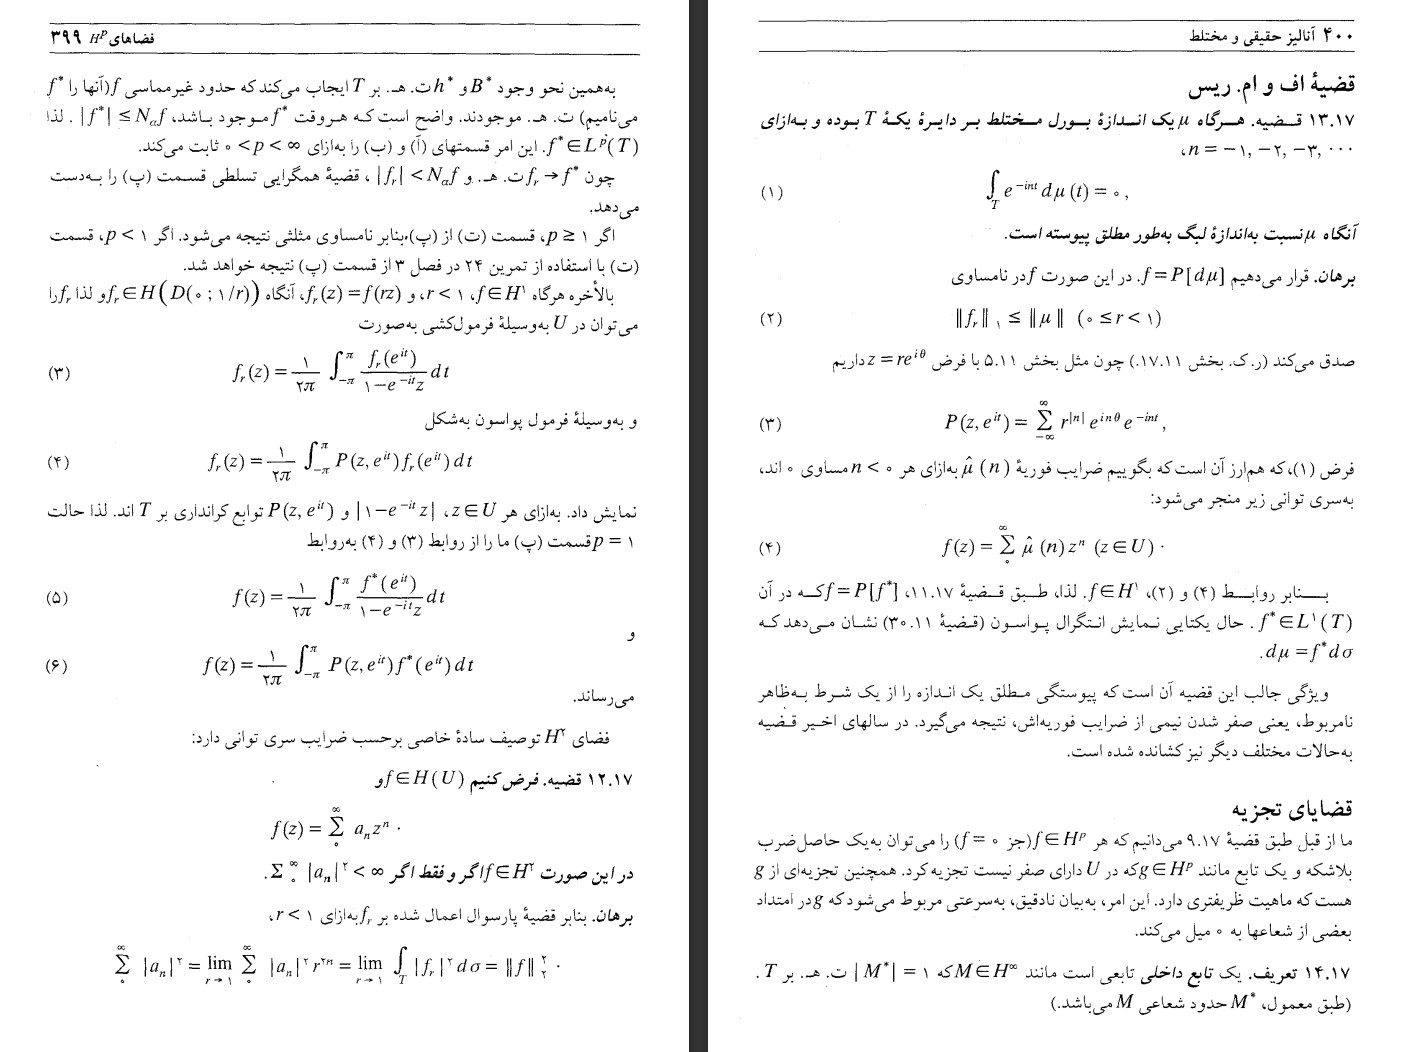 فضاهای H^p ۳۹۹
به‌همین نحو وجود B* و h* ت. هـ. بر T ایجاب می‌کند که حدود غیرمماسی f (آنها را f*
می‌نامیم) ت. هـ. موجودند. واضح است که هروقت f* موجود باشد، |f*| ≤ N_α f . لذا
f* ∈ L^p(T). این امر قسمتهای (آ) و (ب) را به‌ازای ۰ < p < ∞ ثابت می‌کند.
چون f_r → f* ت. هـ. و |f_r| < N_α f ، قضیهٔ همگرایی تسلطی قسمت (پ) را به‌دست
می‌دهد.
اگر p ≥ ۱، قسمت (ت) از (پ)، بنابر نامساوی مثلثی نتیجه می‌شود. اگر p < ۱، قسمت
(ت) با استفاده از تمرین ۲۴ در فصل ۳ از قسمت (پ) نتیجه خواهد شد.
بالأخره هرگاه f ∈ H^۱، r < ۱، و f_r(z) = f(rz)، آنگاه f_r ∈ H(D(۰ ; ۱/r)) و لذا f_r را
می‌توان در U به‌وسیلهٔ فرمول‌کشی به‌صورت
(۳) f_r(z) = ۱/۲π ∫_{-π}^{π} f_r(e^{it})/(۱−e^{−it}z) dt
و به‌وسیلهٔ فرمول پواسون به‌شکل
(۴) f_r(z) = ۱/۲π ∫_{-π}^{π} P(z, e^{it}) f_r(e^{it}) dt
نمایش داد. به‌ازای هر z ∈ U، |۱−e^{−it}z| و P(z, e^{it}) توابع کرانداری بر T اند. لذا حالت
p = ۱ قسمت (پ) ما را از روابط (۳) و (۴) به‌روابط
(۵) f(z) = ۱/۲π ∫_{-π}^{π} f*(e^{it})/(۱−e^{−it}z) dt
و
(۶) f(z) = ۱/۲π ∫_{-π}^{π} P(z, e^{it}) f*(e^{it}) dt
می‌رساند.
فضای H^۲ توصیف سادهٔ خاصی برحسب ضرایب سری توانی دارد:
۱۲.۱۷ قضیه. فرض کنیم f ∈ H(U) و
f(z) = Σ_۰^∞ a_n z^n .
در این صورت f ∈ H^۲ اگر و فقط اگر Σ_۰^∞ |a_n|^۲ < ∞.
برهان. بنابر قضیهٔ پارسوال اعمال شده بر f_r به‌ازای r < ۱،
Σ_۰^∞ |a_n|^۲ = lim_{r→۱} Σ_۰^∞ |a_n|^۲ r^{۲n} = lim_{r→۱} ∫_T |f_r|^۲ dσ = ||f||_۲^۲ .
۴۰۰ آنالیز حقیقی و مختلط
قضیهٔ اف و ام. ریس
۱۳.۱۷ قـضیه. هـرگاه μ یک انـدازهٔ بـورل مـختلط بر دایـرهٔ یکهٔ T بوده و به‌ازای
n = −۱, −۲, −۳, ⋯،
(۱) ∫_T e^{−int} dμ(t) = ۰ ,
آنگاه μ نسبت به‌اندازهٔ لبگ به‌طور مطلق پیوسته است.
برهان. قرار می‌دهیم f = P[dμ]. در این صورت f در نامساوی
(۲) ||f_r||_۱ ≤ ||μ|| (۰ ≤ r < ۱)
صدق می‌کند (ر.ک. بخش ۱۷.۱۱.) چون مثل بخش ۵.۱۱ با فرض z = re^{iθ} داریم
(۳) P(z, e^{it}) = Σ_{−∞}^{∞} r^{|n|} e^{inθ} e^{−int} ,
فرض (۱)، که هم‌ارز آن است که بگوییم ضرایب فوریهٔ μ̂(n) به‌ازای هر n < ۰ مساوی ۰ اند،
به‌سری توانی زیر منجر می‌شود:
(۴) f(z) = Σ_۰^∞ μ̂(n) z^n (z ∈ U) .
بـنابر روابـط (۴) و (۲)، f ∈ H^۱. لذا، طبق قـضیهٔ ۱۱.۱۷، f = P[f*] کـه در آن
f* ∈ L^۱(T) . حال یکتایی نـمایش انـتگرال پـواسون (قضیهٔ ۳۰.۱۱) نشان مـی‌دهد کـه
dμ = f* dσ.
ویژگی جالب این قضیه آن است که پیوستگی مـطلق یک انـدازه را از یک شـرط بـه‌ظاهر
نامربوط، یعنی صفر شدن نیمی از ضرایب فوریه‌اش، نتیجه می‌گیرد. در سالهای اخـیر قـضیه
به‌حالات مختلف دیگر نیز کشانده شده است.
قضایای تجزیه
ما از قبل طبق قضیهٔ ۹.۱۷ می‌دانیم که هر f ∈ H^p (جز f = ۰) را می‌توان به‌یک حاصل‌ضرب
بلاشکه و یک تابع مانند g ∈ H^p که در U دارای صفر نیست تجزیه کرد. همچنین تجزیه‌ای از g
هست که ماهیت ظریفتری دارد. این امر، به‌بیان نادقیق، به‌سرعتی مربوط می‌شود که g در امتداد
بعضی از شعاعها به ۰ میل می‌کند.
۱۴.۱۷ تعریف. یک تابع داخلی تابعی است مانند M ∈ H^∞ که |M*| = ۱ ت. هـ. بر T .
(طبق معمول، M* حدود شعاعی M می‌باشد.)